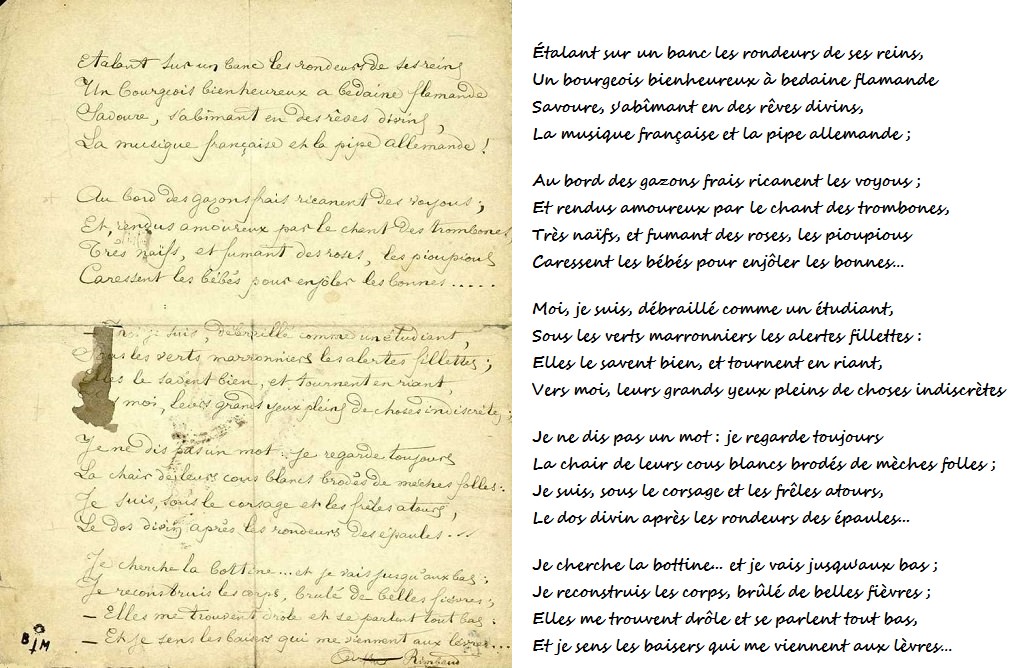 Etalant sur un banc les rondeurs de ses reins
Un bourgeois bienheureux a bedaine flamande
Savoure, s'abîmant en des rêves divins,
La musique française et la pipe allemande !
Au bord des gazons frais ricanent des voyous ;
Et, rendus amoureux par le chant des trombones,
Très naïfs, et fumant des roses, les pioupious
Caressent les bébés pour enjôler les bonnes.....
je suis, débraillé comme un étudiant,
les verts marronniers les alertes fillettes ;
Elles le savent bien, et tournent en riant,
moi, leurs grands yeux pleins de choses indiscrètes ;
Je ne dis pas un mot : je regarde toujours
La chair de leurs cous blancs brodés de mèches folles :
Je suis, sous le corsage et les frêles atours,
Le dos divin après les rondeurs des épaules...
Je cherche la bottine... et je vais jusqu'aux bas ;
Je reconstruis les corps, brulé de belles fièvres ;
— Elles me trouvent drole et se parlent tout bas :
— Et je sens les baisers qui me viennent aux lèvres...
Arthur Rimbaud
BM
Étalant sur un banc les rondeurs de ses reins,
Un bourgeois bienheureux à bedaine flamande
Savoure, s'abîmant en des rêves divins,
La musique française et la pipe allemande ;
Au bord des gazons frais ricanent les voyous ;
Et rendus amoureux par le chant des trombones,
Très naïfs, et fumant des roses, les pioupious
Caressent les bébés pour enjôler les bonnes...
Moi, je suis, débraillé comme un étudiant,
Sous les verts marronniers les alertes fillettes :
Elles le savent bien, et tournent en riant,
Vers moi, leurs grands yeux pleins de choses indiscrètes
Je ne dis pas un mot : je regarde toujours
La chair de leurs cous blancs brodés de mèches folles ;
Je suis, sous le corsage et les frêles atours,
Le dos divin après les rondeurs des épaules...
Je cherche la bottine... et je vais jusqu'aux bas ;
Je reconstruis les corps, brûlé de belles fièvres ;
Elles me trouvent drôle et se parlent tout bas,
Et je sens les baisers qui me viennent aux lèvres...